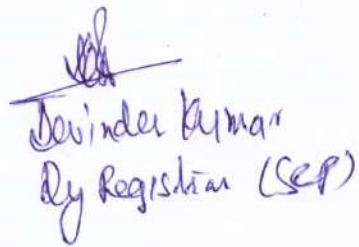 Devinder Kumar
Dy Registrar (SCP)